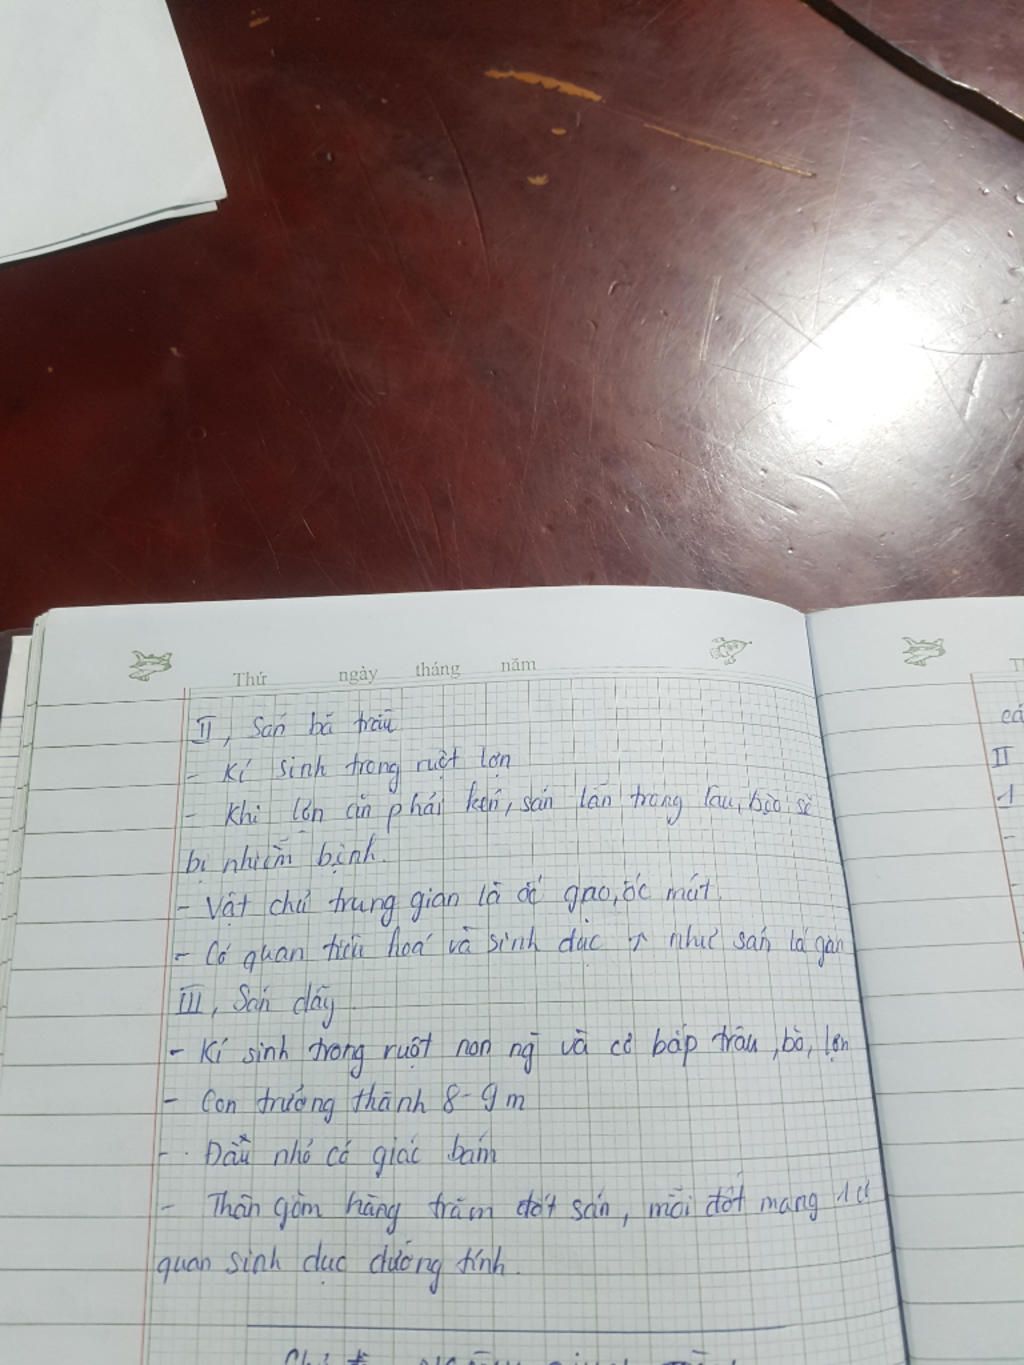 Thứ ngày tháng năm
II, Sán bã trầu
- Kí sinh trong ruột lợn
- Khi lợn ăn phải kén, sán lẫn trong rau, bèo sẽ
bị nhiễm bệnh.
- Vật chủ trung gian là ốc gạo, ốc mút.
- Cơ quan tiêu hoá và sinh dục ↑ như sán lá gan
III, Sán dây
- Kí sinh trong ruột non ng và cơ bắp trâu, bò, lợn
- Con trưởng thành 8-9m
- Đầu nhỏ có giác bám
- Thân gồm hàng trăm đốt sán, mỗi đốt mang 1 cơ
quan sinh dục dưỡng tính.
II
1